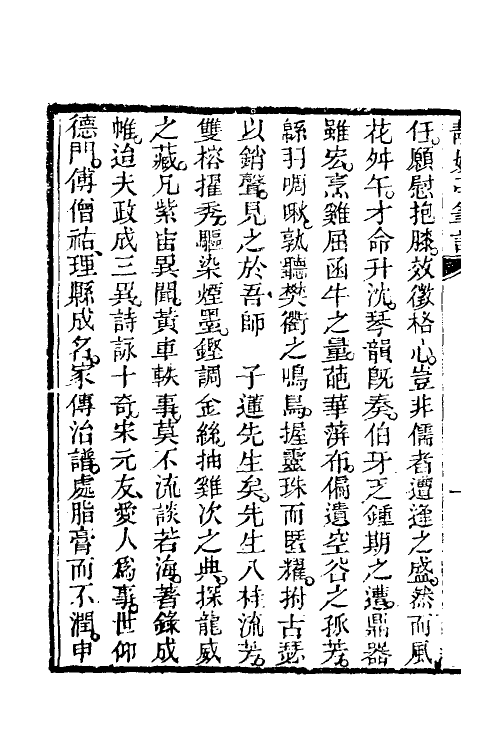 任願慰抱膝效徵格心豈非儒者遭逢之盛然而風
花舛午才命升沈琴韻旣奏伯牙乏鍾期之遭鼎器
雖宏烹雞屈函牛之量葩華蓱布偏遺空谷之孤芳
縣羽啁啾孰聽樊衢之鳴鳥握靈珠而匿耀拊古瑟
以銷聲見之於吾師 子蓮先生矣先生八桂流芳
雙榕擢秀驅染煙墨鏗調金絲抽雞次之典探龍威
之藏凡紫宙異聞黃車軼事莫不流談若海著錄成
帷迨夫政成三異詩詠十奇宋元友愛人爲事世仰
德門傅僧祐理縣成名家傳治譜處脂膏而不潤申